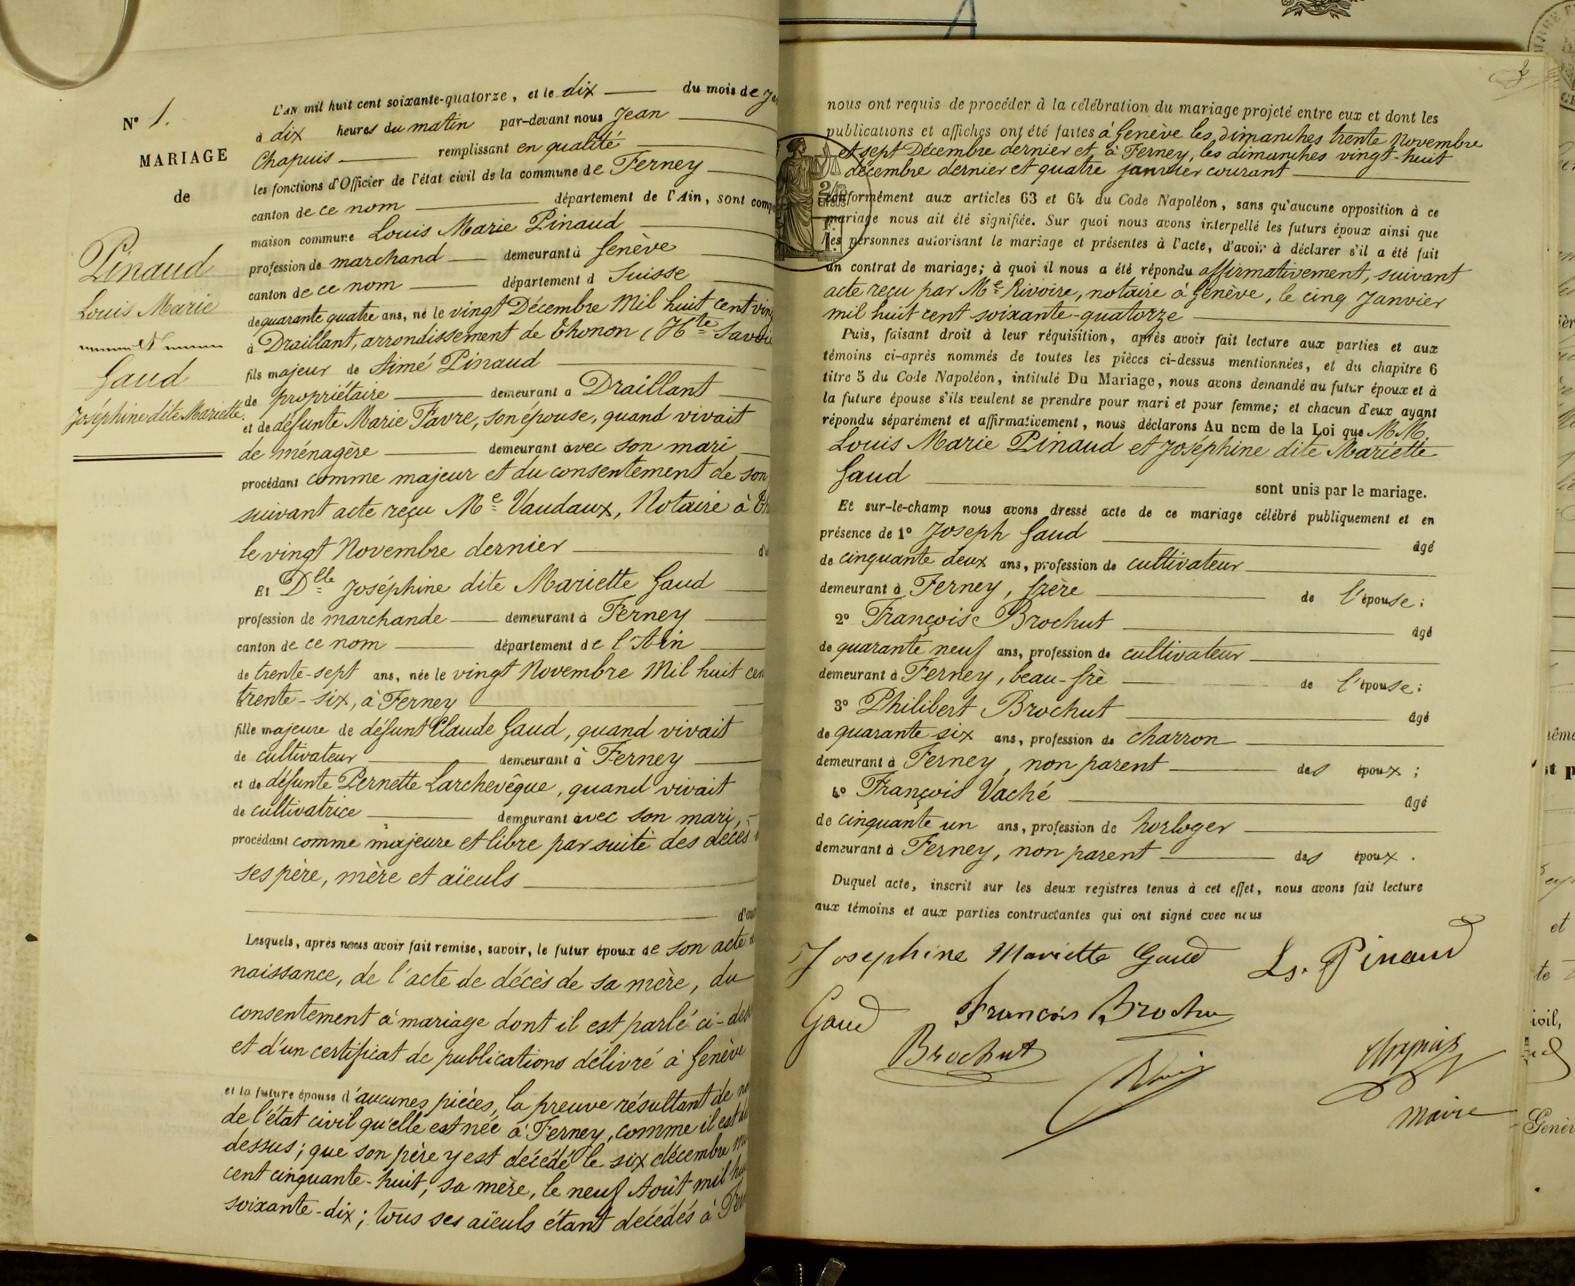 N° 1.
MARIAGE
de
Pinaud
Louis Marie
&
Gaud
Joséphine dite Mariette.
L'AN mil huit cent soixante-quatorze, et le dix du mois de
à dix heures du matin par-devant nous Jean
Chapuis remplissant en qualité
les fonctions d'Officier de l'état civil de la commune de Ferney
canton de ce nom département de l'Ain, sont
maison commune Louis Marie Pinaud
profession de marchand demeurant à Genève
canton de ce nom département d Suisse
de quarante quatre ans, né le vingt Décembre Mil huit cent
à Draillant, arrondissement de Thonon (Hte Savoie
fils majeur de Aimé Pinaud
de propriétaire demeurant à Draillant
et de défunte Marie Favre, son épouse, quand vivait
de ménagère demeurant avec son mari
procédant comme majeur et du consentement de son
suivant acte reçu Me Vaudaux, Notaire à
le vingt Novembre dernier
Et Dlle Joséphine dite Mariette Gaud
profession de marchande demeurant à Ferney
canton de ce nom département de l'Ain
de trente-sept ans, née le vingt Novembre Mil huit cent
trente-six, à Ferney
fille majeure de défunt Claude Gaud, quand vivait
de cultivateur demeurant à Ferney
et de défunte Pernette Larchevêque, quand vivait
de cultivatrice demeurant avec son mari,
procédant comme majeure et libre par suite des décès
ses père, mère et aïeuls
Lesquels, après nous avoir fait remise, savoir, le futur époux de son acte
naissance, de l'acte de décès de sa mère, du
consentement à mariage dont il est parlé ci-
et d'un certificat de publications délivré à Genève
et la future épouse d'aucunes pièces, la preuve résultant de
de l'état civil qu'elle est née à Ferney, comme il est
dessus; que son père y est décédé le six décembre
cent cinquante-huit, sa mère, le neuf Août mil
soixante-dix; tous ses aïeuls étant décédés à
nous ont requis de procéder à la célébration du mariage projeté entre eux et dont les
publications et affiches ont été faites à Genève les dimanches trente Novembre
et sept Décembre dernier et à Ferney, les dimanches vingt-huit
décembre dernier et quatre janvier courant
conformément aux articles 63 et 64 du Code Napoléon, sans qu'aucune opposition à ce
mariage nous ait été signifiée. Sur quoi nous avons interpellé les futurs époux ainsi que
les personnes autorisant le mariage et présentes à l'acte, d'avoir à déclarer s'il a été fait
un contrat de mariage; à quoi il nous a été répondu affirmativement, suivant
acte reçu par Me Rivoire, notaire à Genève, le cinq Janvier
mil huit cent soixante-quatorze
Puis, faisant droit à leur réquisition, après avoir fait lecture aux parties et aux
témoins ci-après nommés de toutes les pièces ci-dessus mentionnées, et du chapitre 6
titre 5 du Code Napoléon, intitulé Du Mariage, nous avons demandé au futur époux et à
la future épouse s'ils veulent se prendre pour mari et pour femme; et chacun d'eux ayant
répondu séparément et affirmativement, nous déclarons Au nom de la Loi que MM.
Louis Marie Pinaud et Joséphine dite Mariette
Gaud sont unis par le mariage.
Et sur-le-champ nous avons dressé acte de ce mariage célébré publiquement et en
présence de 1° Joseph Gaud âgé
de cinquante deux ans, profession de cultivateur
demeurant à Ferney, frère de l'épouse;
2° François Brochut âgé
de quarante neuf ans, profession de cultivateur
demeurant à Ferney, beau-frè de l'épouse;
3° Philibert Brochut âgé
de quarante six ans, profession de charron
demeurant à Ferney, non parent des époux;
4° François Vaché âgé
de cinquante un ans, profession de horloger
demeurant à Ferney, non parent des époux.
Duquel acte, inscrit sur les deux registres tenus à cet effet, nous avons fait lecture
aux témoins et aux parties contractantes qui ont signé avec nous
Josephine Mariette Gaud Ls. Pinaud
Gaud Francois Brochu
Brochut Chapuis
Maire